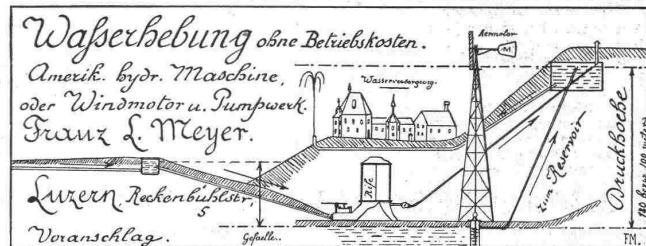 Wasserhebung ohne Betriebskosten.
Amerik. hydr. Maschine,
oder Windmotor u. Pumpwerk.
Franz L. Meyer.
Luzern, Reckenbühlstr.
5
Voranschlag.
Gefaelle.
Wasserversorgung
M.
Rife
zum Reservoir
Druckhoehe
FM.